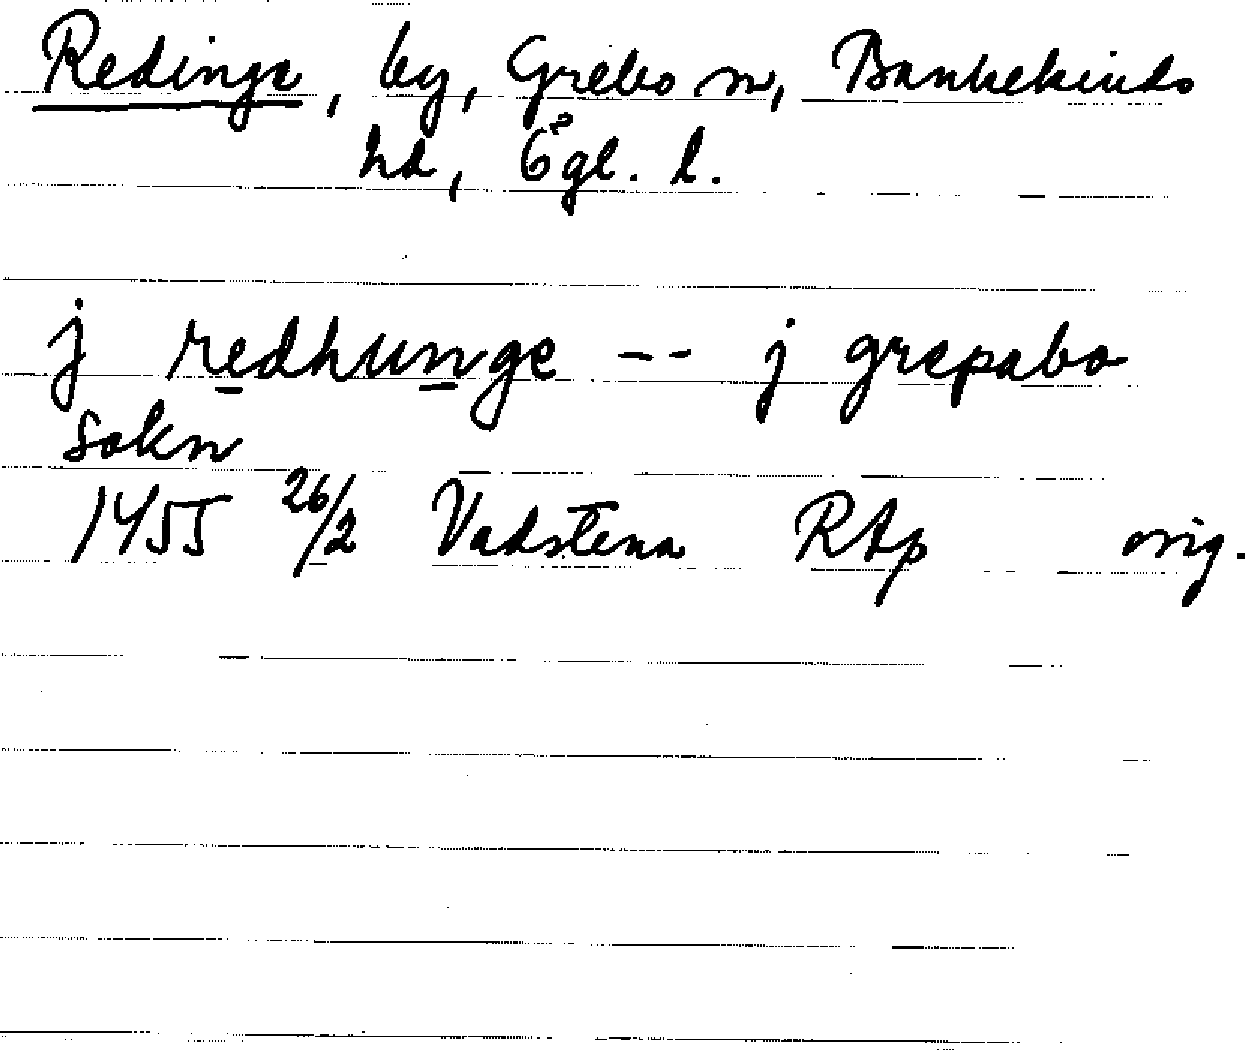 Redinge, by, Grebo sn, Bankekinds
hd, Ögl. l.
j redhunge -- j grepabo
sokn
1455 26/2 Vadstena RAp orig.